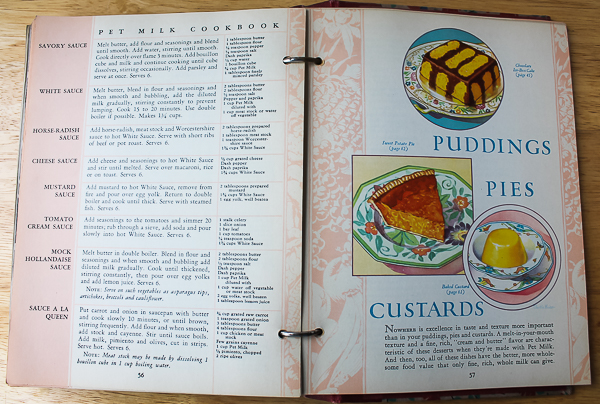 PET MILK COOKBOOK
SAVORY SAUCE
Melt butter, add flour and seasonings and blend
until smooth. Add water, stirring until smooth.
Cook directly over flame 5 minutes. Add bouillon
cube and milk and continue cooking until cube
dissolves, stirring occasionally. Add parsley and
serve at once. Serves 6.
1 tablespoon butter
1 tablespoon flour
Dash paprika
1 bouillon cube
1 cup Pet Milk
WHITE SAUCE
Melt butter, blend in flour and seasonings and
when smooth and bubbling, add the diluted
milk gradually, stirring constantly to prevent
lumping. Cook 15 to 20 minutes. Use double
boiler if possible. Makes 1¾ cups.
2 tablespoons butter
2 tablespoons flour
Pepper and paprika
1 cup Pet Milk
diluted with
HORSE-RADISH
SAUCE
Add horse-radish, meat stock and Worcestershire
sauce to hot White Sauce. Serve with short ribs
of beef or pot roast. Serves 6.
2 tablespoons prepared
horse-radish
1 tablespoon meat stock
1 teaspoon Worcester-
shire sauce
1¾ cups White Sauce
CHEESE SAUCE
Add cheese and seasonings to hot White Sauce
and stir until melted. Serve over macaroni, rice
or on toast. Serves 6.
Dash pepper
Dash paprika
1¾ cups White Sauce
MUSTARD
SAUCE
Add mustard to hot White Sauce, remove from
fire and pour over egg yolk. Return to double
boiler and cook until thick. Serve with steamed
fish. Serves 6.
2 tablespoons prepared
mustard
1¾ cups White Sauce
1 egg yolk, well beaten
TOMATO
CREAM SAUCE
Add seasonings to the tomatoes and simmer 20
minutes, rub through a sieve, add soda and pour
slowly into hot White Sauce. Serves 6.
1 stalk celery
1 slice onion
1 bay leaf
1 cup tomatoes
1¾ cups White Sauce
MOCK
HOLLANDAISE
SAUCE
Melt butter in double boiler. Blend in flour and
seasonings and when smooth and bubbling add
diluted milk gradually. Cook until thickened,
stirring constantly, then pour over egg yolks
and add lemon juice. Serves 6.
NOTE: Serve on such vegetables as asparagus tips,
artichokes, broccoli and cauliflower.
2 tablespoons butter
2 tablespoons flour
Dash pepper
Dash paprika
1 cup Pet Milk
diluted with
or meat stock
2 egg yolks, well beaten
SAUCE A LA
QUEEN
Put carrot and onion in saucepan with butter
and cook slowly 10 minutes, or until brown,
stirring frequently. Add flour and when smooth,
add stock and cayenne. Stir until sauce boils.
Add milk, pimiento and olives, cut in strips.
Serve hot. Serves 6.
NOTE: Meat stock may be made by dissolving 1
bouillon cube in 1 cup boiling water.
3 tablespoons butter
Few grains cayenne
1 cup Pet Milk
56
Chocolate
PUDDINGS
Sweet Potato Pie
PIES
Baked Custard
CUSTARDS
NOWHERE is excellence in taste and texture more important
than in your puddings, pies and custards. A melt-in-your-mouth
texture and a fine, rich, "cream and butter" flavor are charac-
teristic of these desserts when they're made with Pet Milk.
And then, too, all of these dishes have the better, more whole-
some food value that only fine, rich, whole milk can give.
57